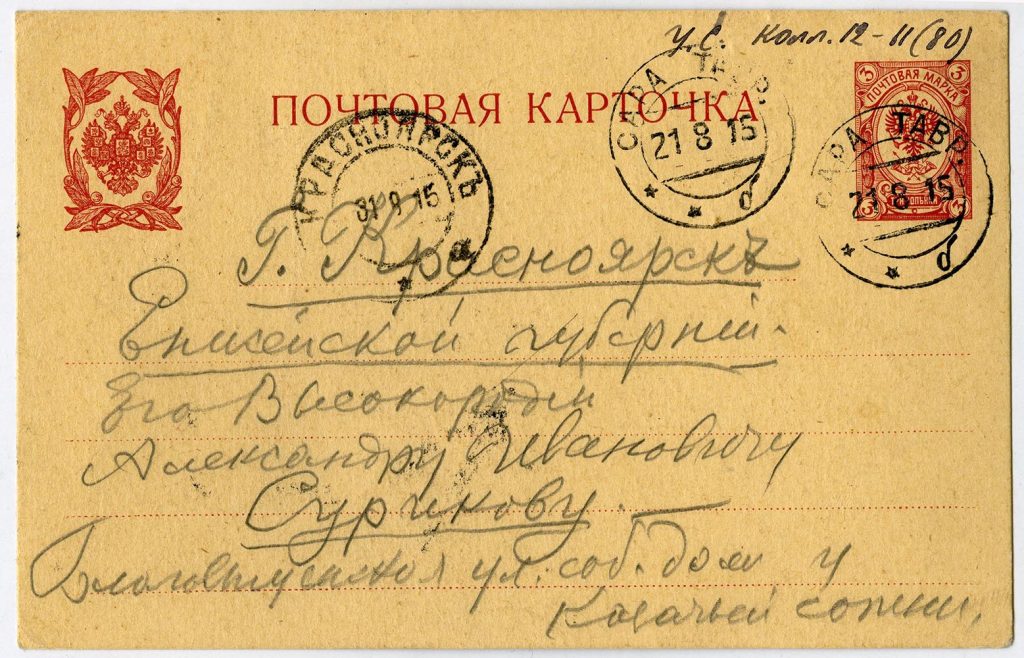 У.С. Колл. 12-11(80)
ПОЧТОВАЯ КАРТОЧКА
3 3
ПОЧТОВАЯ МАРКА
3 3
САРА ТАВР.
21 8 15
б
САРА ТАВР.
21 8 15
б
КРАСНОЯРСКЪ
31 8 15
а
Г. Красноярскъ
Енисейской губерніи.
Его Высокородію
Александру Ивановичу
Сурикову.
Благовещенская ул. соб. дом у
Казачьей сотни.